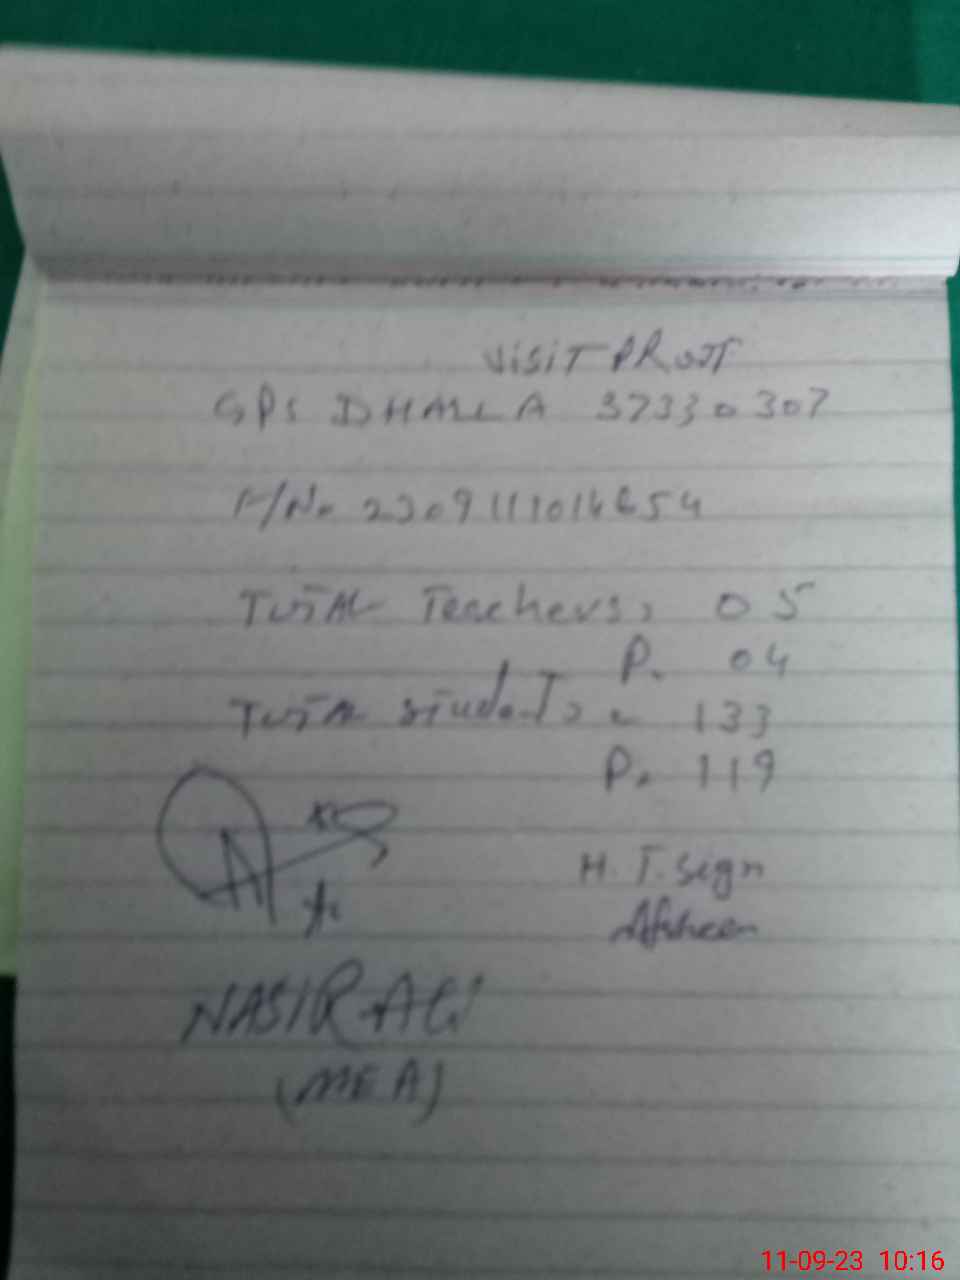 VISIT PROOF
GPS DHALLA 37330307
F/No 2309111016654
TOTAL Teachers, 05
P. 04
TOTAL students = 133
P. 119
H. T. Sign
Afsheen
NASIR ALI
(MEA)
11-09-23 10:16